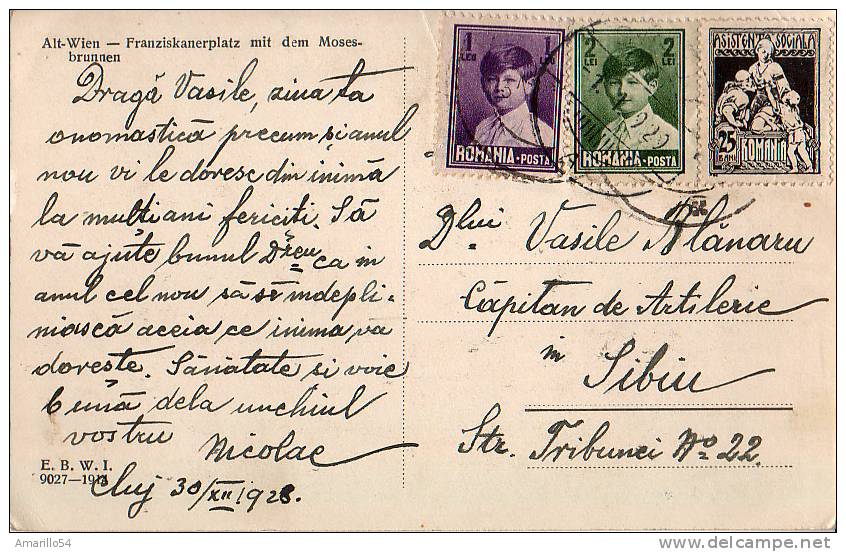 Alt-Wien — Franziskanerplatz mit dem Moses-
brunnen
Dragă Vasile, ziua ta
onomastică precum și anul
nou vi le doresc din inimă
la mulți ani fericiti. Să
vă ajute bunul Dzeu ca in
anul cel nou să să indepli-
niască aceia ce inima vă
doreste. Sănatate si voie
bună dela unchiul
vostru Nicolae
E. B. W. I.
9027-1914
Cluj 30/XII 1928.
1 LEU 1 LEU
ROMÂNIA-POSTA
2 LEI 2 LEI
ROMÂNIA-POSTA
ASISTENȚA SOCIALA
25 BANI ROMÂNIA
Dlui Vasile
Căpitan de Artilerie
in
Sibiu
Str. Tribunei No 22.
Amarillo54
delcampe.net